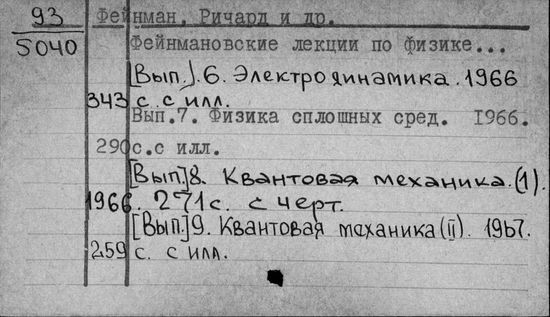 93
5040
Фейнман, Ричард и др.
Фейнмановские лекции по физике...
[Вып.]6. Электродинамика. 1966
343 с. с илл.
Вып.7. Физика сплошных сред. 1966.
290 с.с илл.
[Вып]8. Квантовая механика.(1).
1966. 271 с. с черт.
[Вып.]9. Квантовая механика(II). 1967.
259 с. с илл.